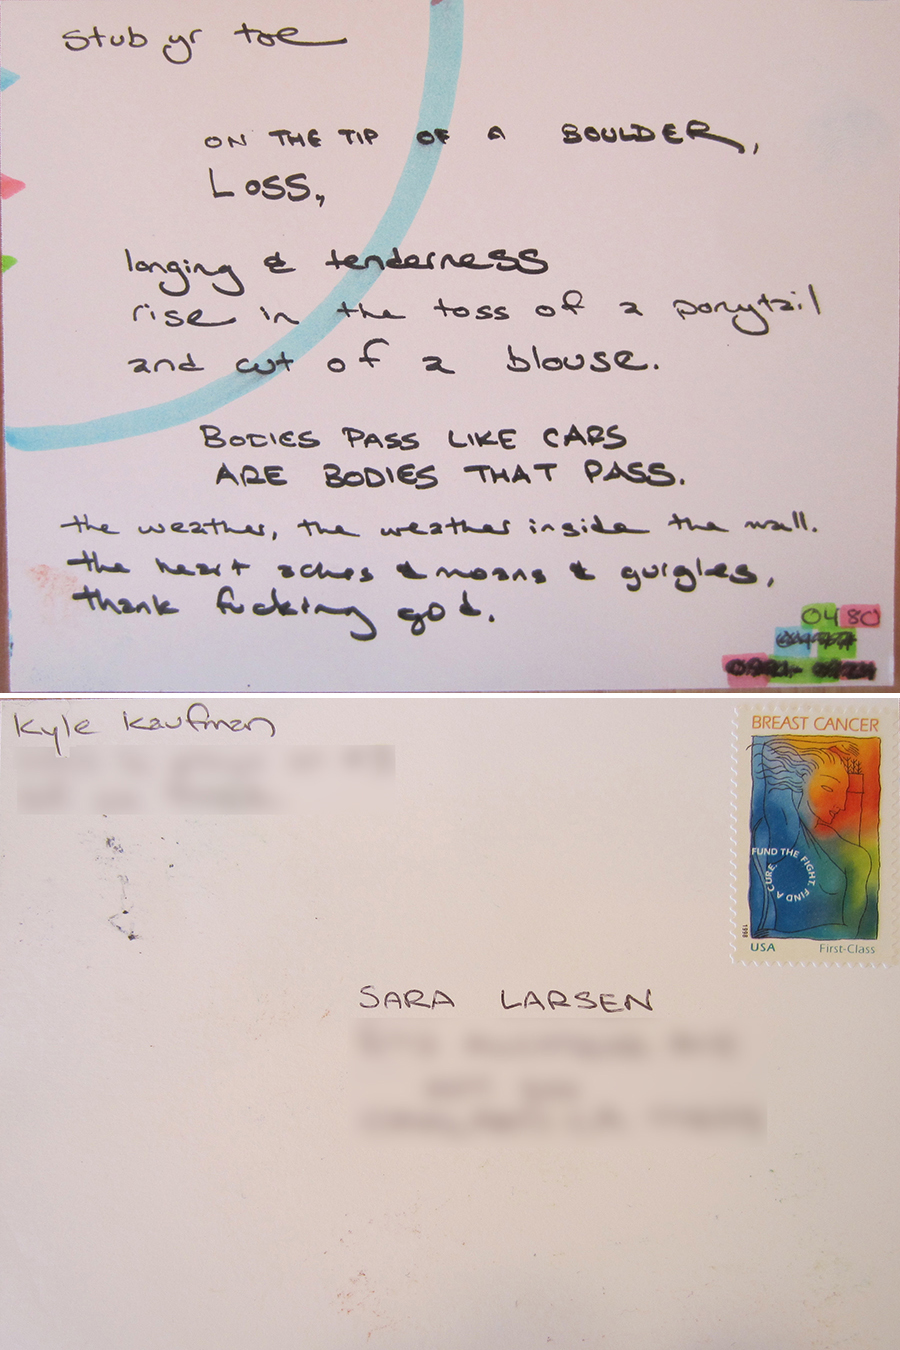 stub yr toe
ON THE TIP OF A BOULDER,
LOSS,
longing & tenderness
rise in the toss of a ponytail
and cut of a blouse.
BODIES PASS LIKE CARS
ARE BODIES THAT PASS.
the weather, the weather inside the wall.
the heart aches & moans & gurgles,
thank fucking god.
0480
Kyle Kaufman
BREAST CANCER
FUND THE FIGHT. FIND A CURE.
1998
USA First-Class
SARA LARSEN